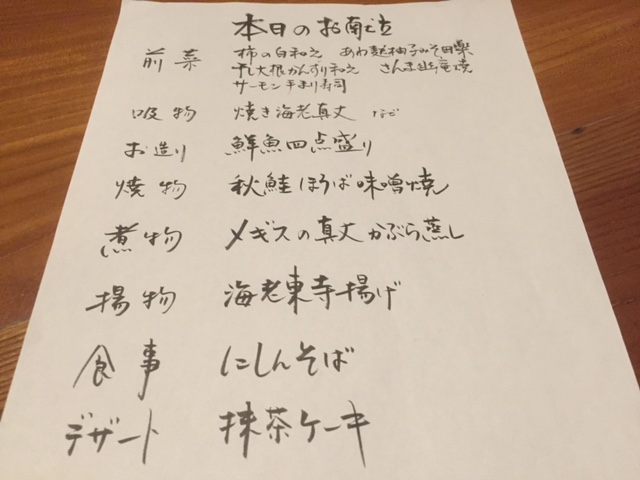 本日のお献立
前菜 柿の白和え あわ麩柚子みそ田楽
干し大根かんずり和え さんま幽庵焼
サーモン手まり寿司
吸物 焼き海老真丈
お造り 鮮魚四点盛り
焼物 秋鮭ほうば味噌焼
煮物 メギスの真丈かぶら蒸し
揚物 海老東寺揚げ
食事 にしんそば
デザート 抹茶ケーキ